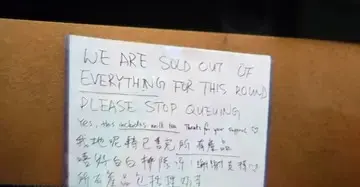 WE ARE SOLD OUT OF
EVERYTHING FOR THIS ROUND
PLEASE STOP QUEUING
Yes, this includes milk tea Thanks for your support ♡
我地呢轉已售完所有產品
唔好白白排隊冷！謝謝支持♡
所有產品包括